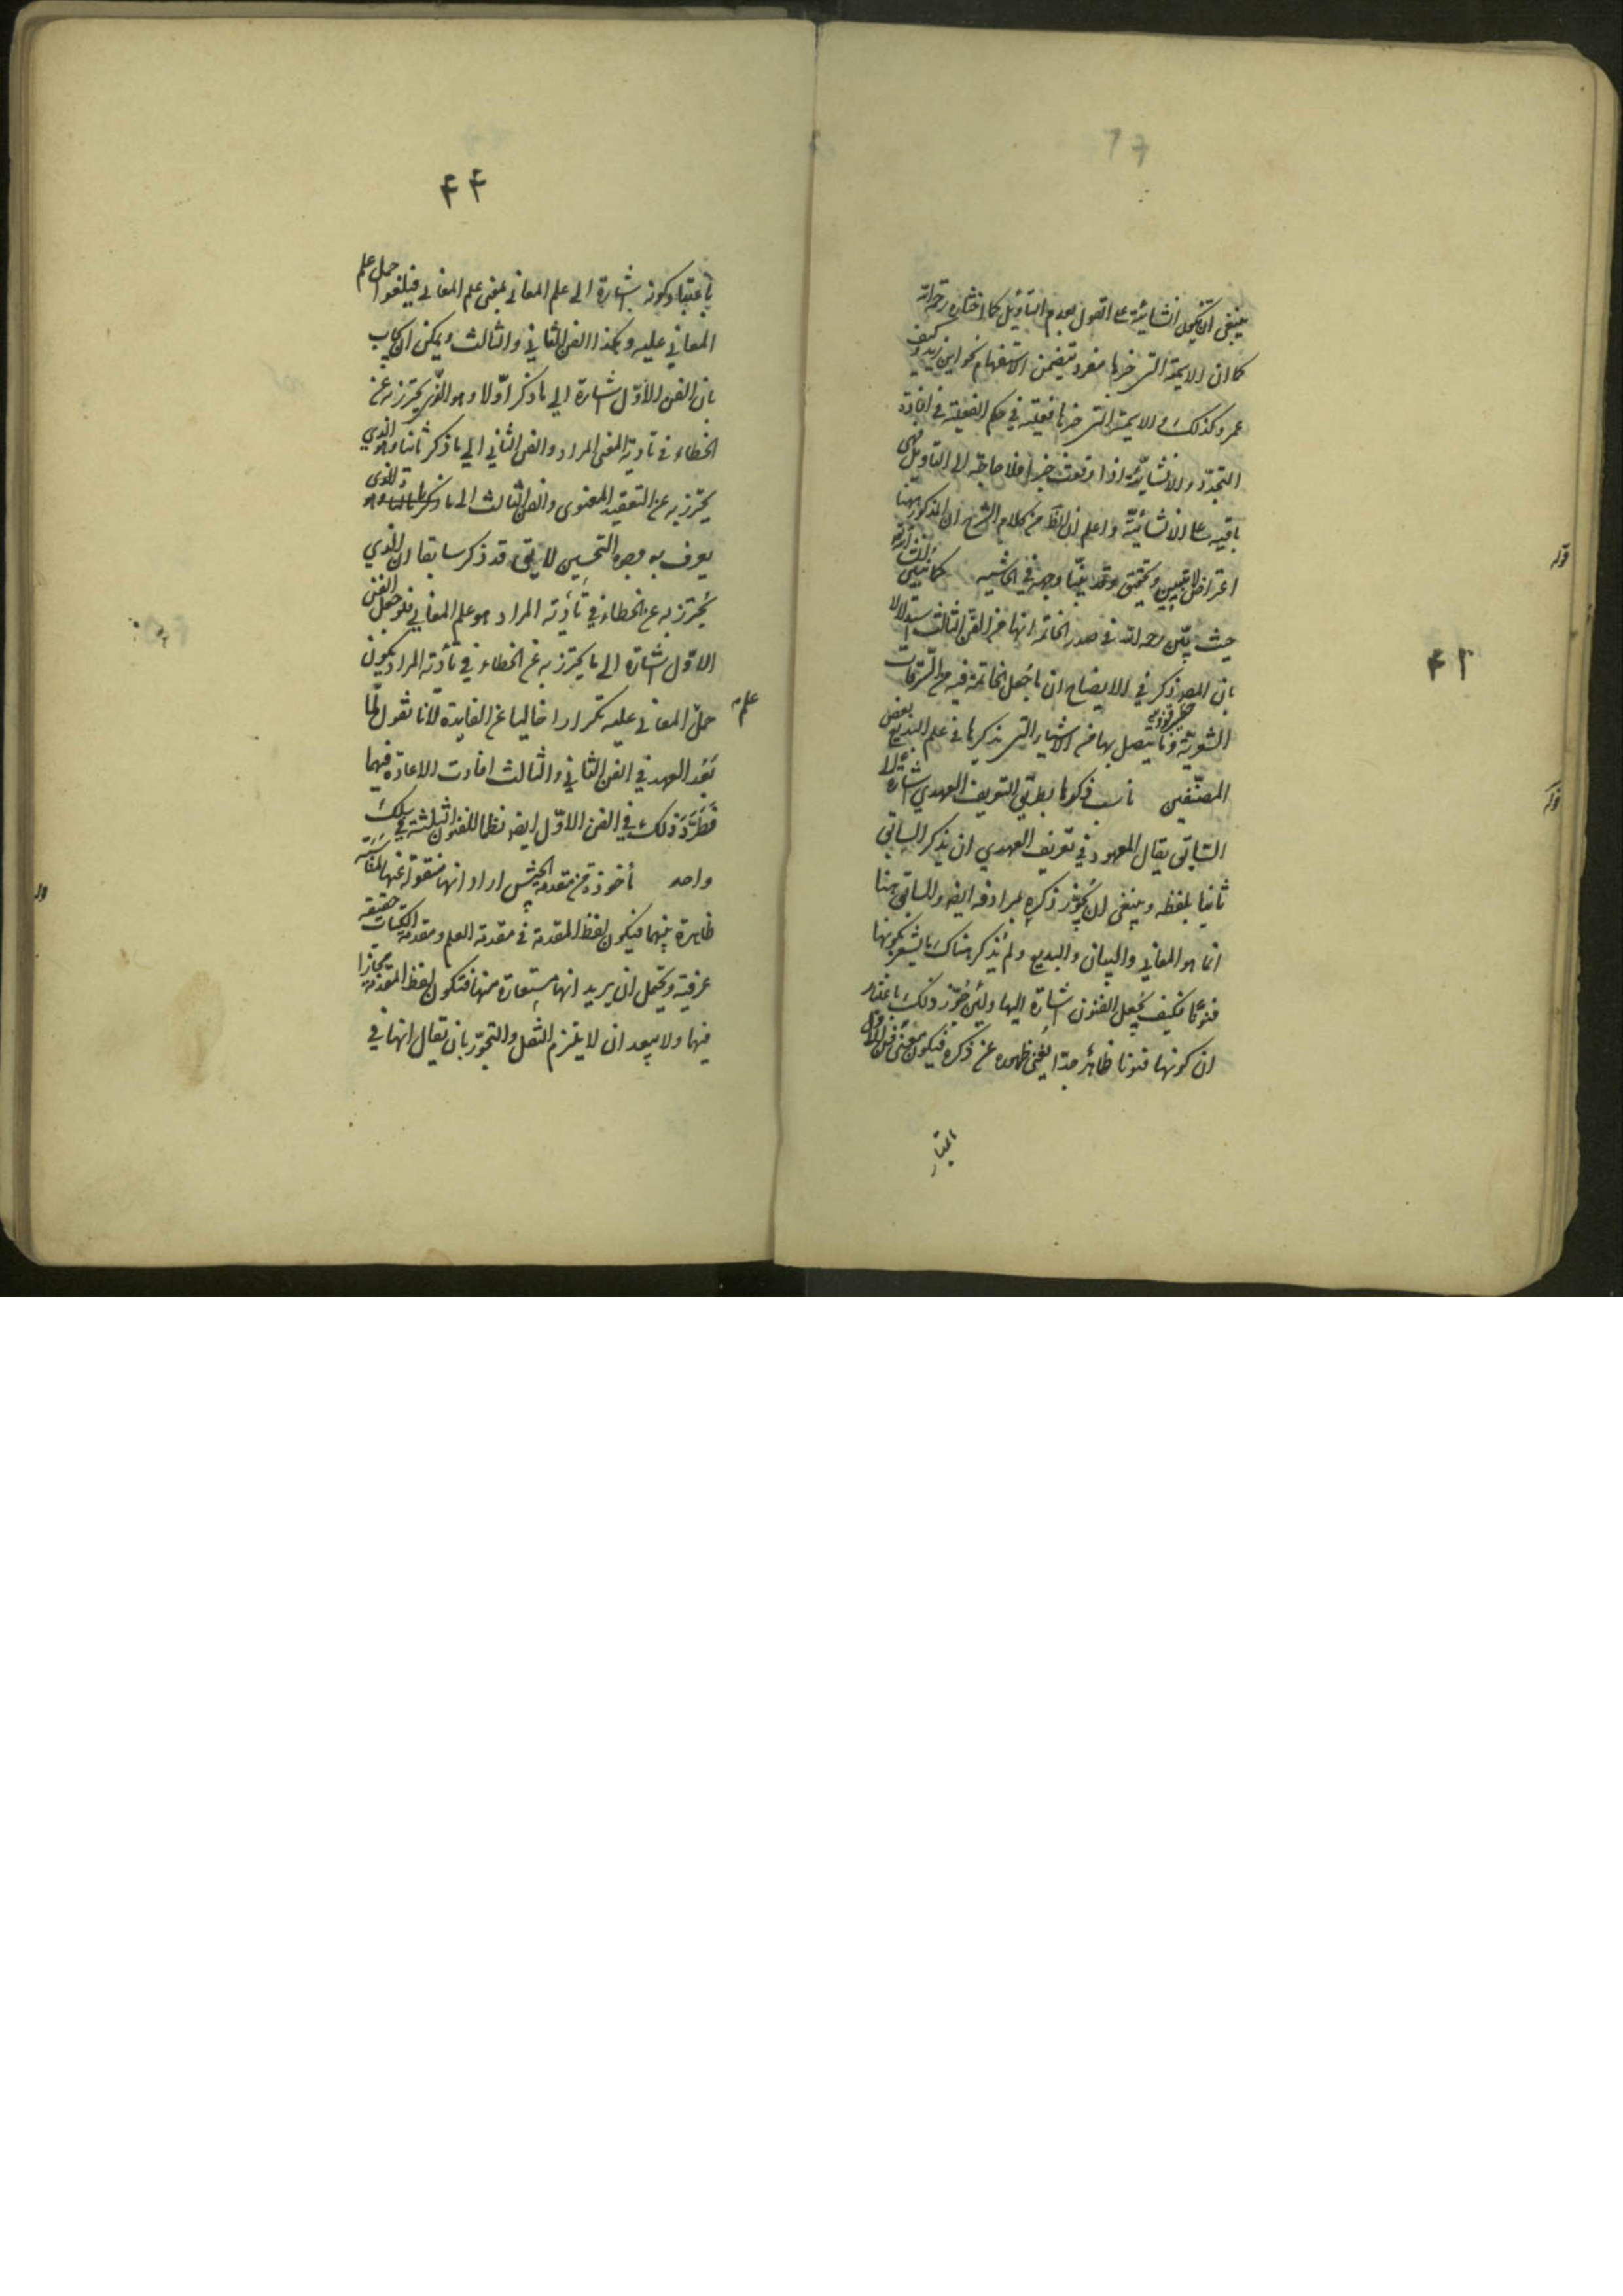 ٤٣
ينبغي ان تكون انشائية على القول بعدم التأويل كما اختاره رحمه الله
كما ان الاسمية التي خبرها مفرد يتضمن الاستفهام نحو اين زيد وكيف
عمرو كذلك والاسمية التي خبرها فعلية في حكم الفعلية في افادة
التجدد والانشائية اذا وقعت خبرا فلا حاجة الى التأويل فهي
باقية على الانشائية واعلم ان الظ من كلام الشرح ان المذكور ههنا
اعتراض لا تبيين وتحقيق وقد بينا وجهه في الحاشية
قوله كما نبين ان شاء الله
حيث بين رحمه الله في صدر الخاتمة انها من الفن الثالث استدلالا
بان المص ذكر في الايضاح ان ما جعل الخاتمة فيه من السرقات
الشعرية وما يتصل بها من الاشياء التي يذكرها في علم البديع بعض
المصنفين
قوله ناسب ذكرها بطريق التعريف العهدي اشارة الى
السابق يقال المعهود في تعريف العهدي ان يذكر السابق
ثانيا بلفظه وينبغي ان يجوز ذكره بمرادفه ايضا والسابق ههنا
انما هو المعاني والبيان والبديع ولم يذكر هناك ما يشعر بكونها
فنونا فكيف يجعل الفنون اشارة اليها ولئن جوز ذلك باعتبار
ان كونها فنونا ظاهر جدا يغني ظهوره عن ذكره فيكون معنى الفن الاول
باعتبار
٤٤
باعتبار كونه اشارة الى علم المعاني بمعنى علم المعاني فيلغو حمل علم
المعاني عليه وكذا الفن الثاني والثالث ويمكن ان يجاب
بان الفن الاول اشارة الى ما ذكر اولا وهو الذي يحترز به عن
الخطاء في تأدية المعنى المراد والفن الثاني الى ما ذكر ثانيا وهو الذي
يحترز به عن التعقيد المعنوي والفن الثالث الى ما ذكر ثالثا وهو الذي
يعرف به وجوه التحسين لا يقال قد ذكر سابقا ان الذي
يحترز به عن الخطاء في تأدية المراد هو علم المعاني فلو جعل الفن
الاول اشارة الى ما يحترز به عن الخطاء في تأدية المراد يكون
حمل علم المعاني عليه تكرارا خاليا عن الفايدة لانا نقول لما
بعد العهد في الفن الثاني والثالث افادت الاعادة فيهما
فطرد ذلك في الفن الاول ايضا نظما للفنون الثلثة في سلك
واحد
قوله مأخوذة من مقدمة الجيش اراد انها منقولة عنها لمناسبة
ظاهرة بينهما فيكون لفظ المقدمة في مقدمة العلم ومقدمة الكتاب حقيقة
عرفية ويحتمل ان يريد انها مستعارة منها فتكون لفظ المقدمة مجازا
فيها ولا يبعد ان لا يلتزم النقل والتجوز بان يقال انها في